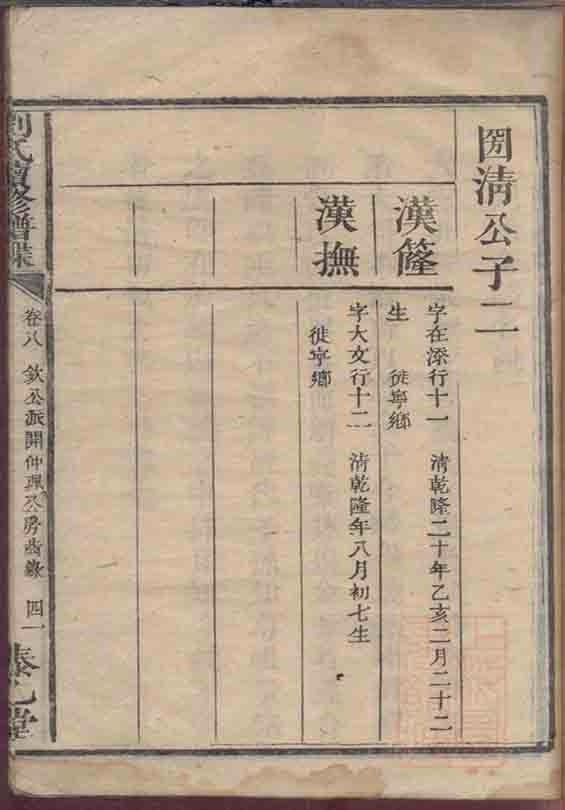 清公子二
漢簰
字在添行十一 清乾隆二十年乙亥二月二十二
生 徙寧鄉
漢撫
字大文行十二 清乾隆年八月初七生
徙寧鄉
劉氏續修譜牒
卷八 欽公派開仲理公房齒錄 四一
堂